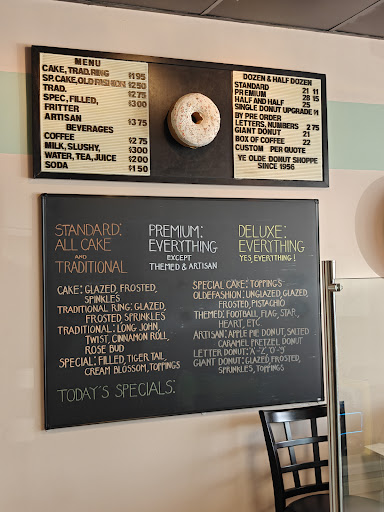 MENU
CAKE, TRAD.RING $1.95
SP.CAKE,OLD FASHION $2.50
TRAD. $2.75
SPEC, FILLED, $3.00
FRITTER
ARTISAN $3.75
BEVERAGES
COFFEE $2.75
MILK, SLUSHY, $3.00
WATER, TEA, JUICE $2.00
SODA $1.50
DOZEN & HALF DOZEN
STANDARD 21 11
PREMIUM 28 15
HALF AND HALF 25
SINGLE DONUT UPGRADE $1
BY PRE ORDER
LETTERS, NUMBERS 2.75
GIANT DONUT 21
BOX OF COFFEE 22
CUSTOM PER QUOTE
YE OLDE DONUT SHOPPE
SINCE 1956
STANDARD:
ALL CAKE
AND
TRADITIONAL
PREMIUM:
EVERYTHING
EXCEPT
THEMED & ARTISAN
DELUXE:
EVERYTHING
YES EVERYTHING!
CAKE: GLAZED, FROSTED,
SPINKLES
TRADITIONAL RING: GLAZED,
FROSTED SPRINKLES
TRADITIONAL: LONG JOHN,
TWIST, CINNAMON ROLL,
ROSE BUD
SPECIAL: FILLED, TIGER TAIL,
CREAM BLOSSOM, TOPPINGS
SPECIAL CAKE: TOPPINGS
OLDEFASHION: UNGLAZED, GLAZED,
FROSTED, PISTACHIO
THEMED: FOOTBALL, FLAG, STAR,
HEART, ETC.
ARTISAN: APPLE PIE DONUT, SALTED
CARAMEL PRETZEL DONUT
LETTER DONUT: "A"-"Z", "0"-"9"
GIANT DONUT: GLAZED, FROSTED,
SPRINKLES, TOPPINGS
TODAY'S SPECIALS: